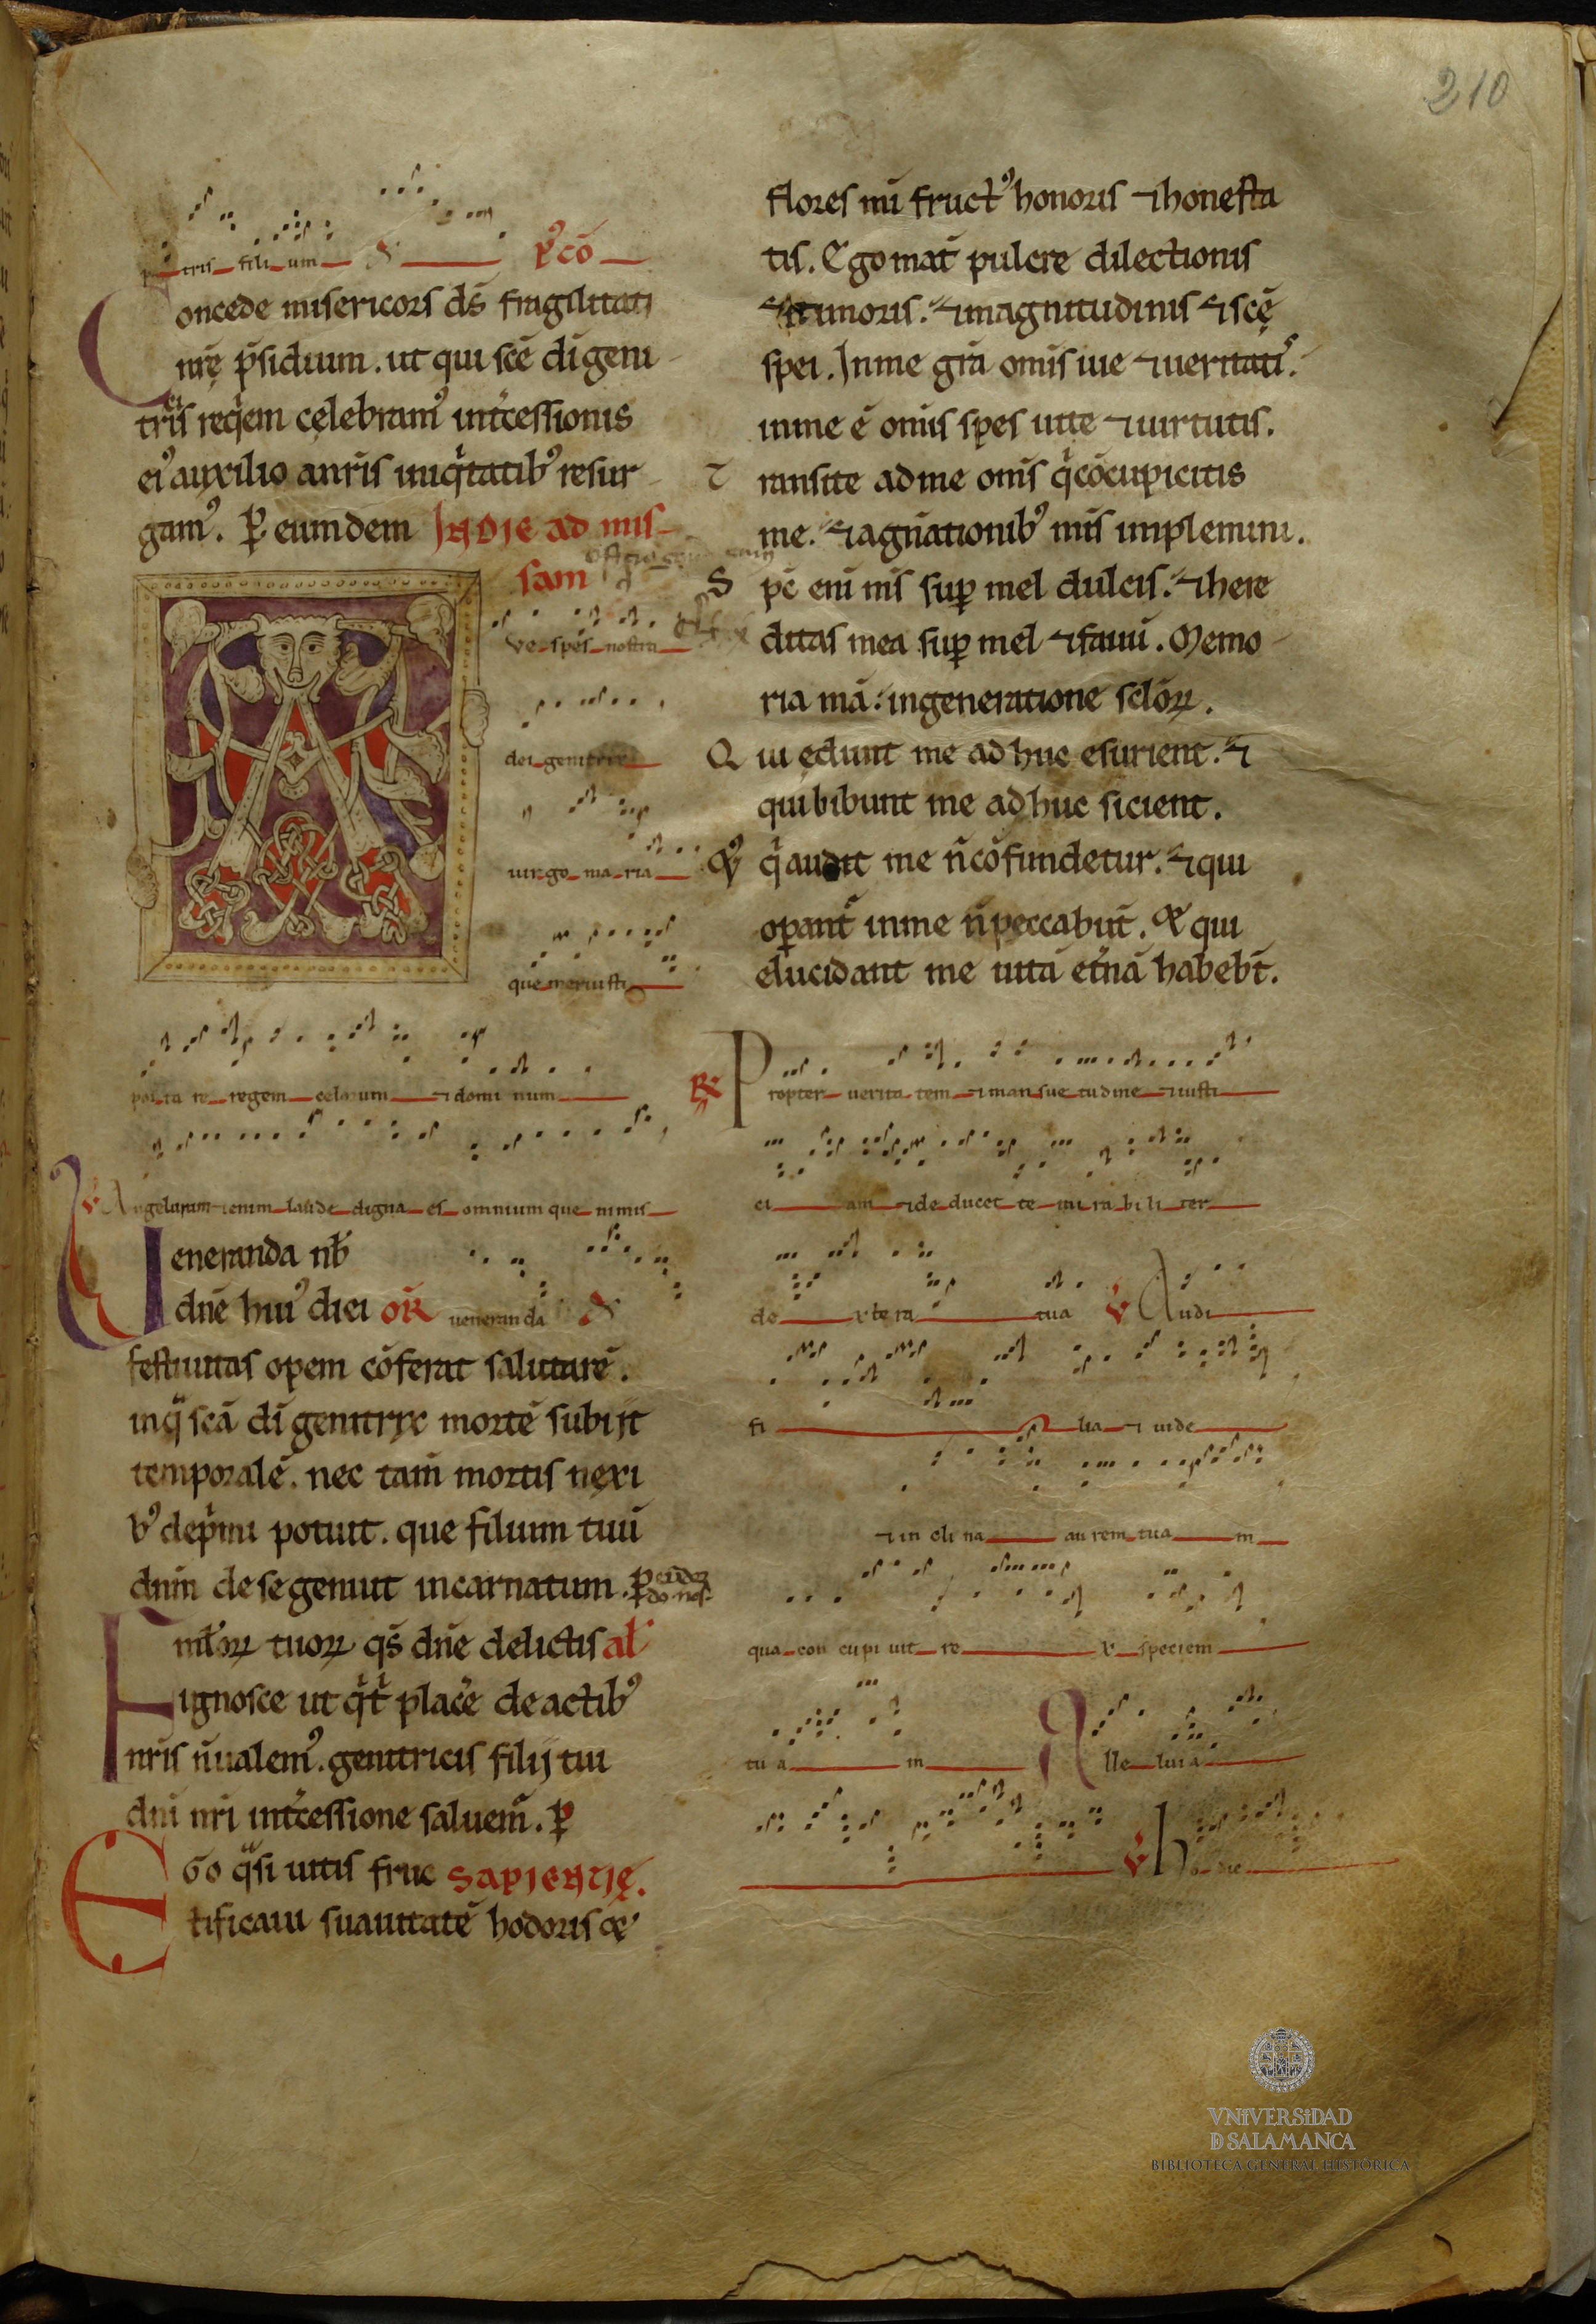 210
tris fili um
P̾ cō
Concede misericors d̄s fragilitati
nr̄ę p̄sidium. ut qui sc̄e dī geni
tricis reqiem celebramꝰ int̄cessionis
eiꝰ auxilio a nr̄is iniqitatibꝰ resur
gamꝰ. ꝑ eumdem IN DIE ad mis
sam
Ave spes nostra
dei genitrix
uirgo ma ria
que meruisti
porta re regem celorum ⁊ domi num
V̾ Angelorum enim laude digna es omnium que nimis
Veneranda nb̄
dn̄e huiꝰ diei OR̄ ueneranda
festiuitas opem cōferat salutarē.
in q̄ scā dī genitrix mortē subiit
temporalē. nec tam̄ mortis nexi
bꝰ dep̄mi potuit. que filium tuū
dnm̄ de se genuit incarnatum. ꝑ
Faml̄oꝝ tuoꝝ q̄s dn̄e delictis al̄
ignosce ut q̄ t̄ plac̄e de actibꝰ
nr̄is n̄ ualemꝰ. genitricis filij tui
dn̄i nr̄i int̄cessione saluem̄. ꝑ
EGo q̄si uitis fruc SAPIENTIĘ.
tificaui suauitatē hodoris ⁊
flores mī fructꝰ honoris ⁊ honesta
tis. Ego mat̄ pulcre dilectionis
⁊ timoris. ⁊ magnitudinis ⁊ scę̄
spei. In me grā om̄is uie ⁊ ueritatis.
in me ē om̄is spes uite ⁊ uirtutis.
T ransite ad me om̄s q̄ cōcupicitis
me. ⁊ a gn̄ationibꝰ mīs implemini.
S pc̄ eni mīs suꝑ mel dulcis. ⁊ here
ditas mea suꝑ mel ⁊ fauū. Memo
ria mā in generatione sclōꝝ.
Q ui edunt me ad huc esurient. ⁊
qui bibunt me ad huc sicient.
q̄ audit me n̄ cōfundetur. ⁊ qui
oꝑant̄ in me n̄ peccabūt. Et qui
elucidant me uitā et̄nā habebt̄.
R̾ Propter uerita tem ⁊ man sue tudine ⁊ iusti
ci am ⁊ de ducet te mi ra bi li ter
de xte ra tua V̾ Audi
fi lia ⁊ uide
⁊ in cli na au rem tua m
qua con cupi uit re x speciem
tu a m Alle luia
V̾ ho die
VNIVERSIDAD
D SALAMANCA
BIBLIOTECA GENERAL HISTÓRICA